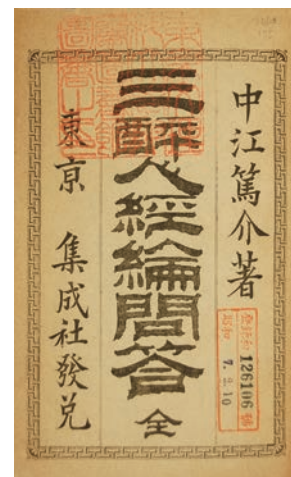 中江篤介著
三酔人經綸問答 全
東京 集成社發兌
126106
7. 2. 10